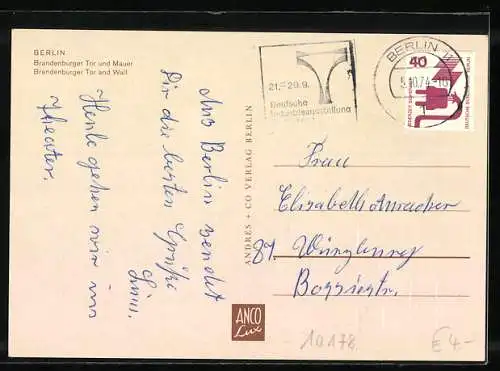 BERLIN
Brandenburger Tor und Mauer
Brandenburger Tor and Wall
Aus Berlin sendet
Dir die besten Grüße
Heute gehen wir ins
Theater.
ANDRES + CO VERLAG BERLIN
ANCO
Lux
21.–29.9.
Deutsche
Industrieausstellung
BERLIN
5.10.74
40
Frau
Elisabeth
87. Würzburg
10178
€ 4-